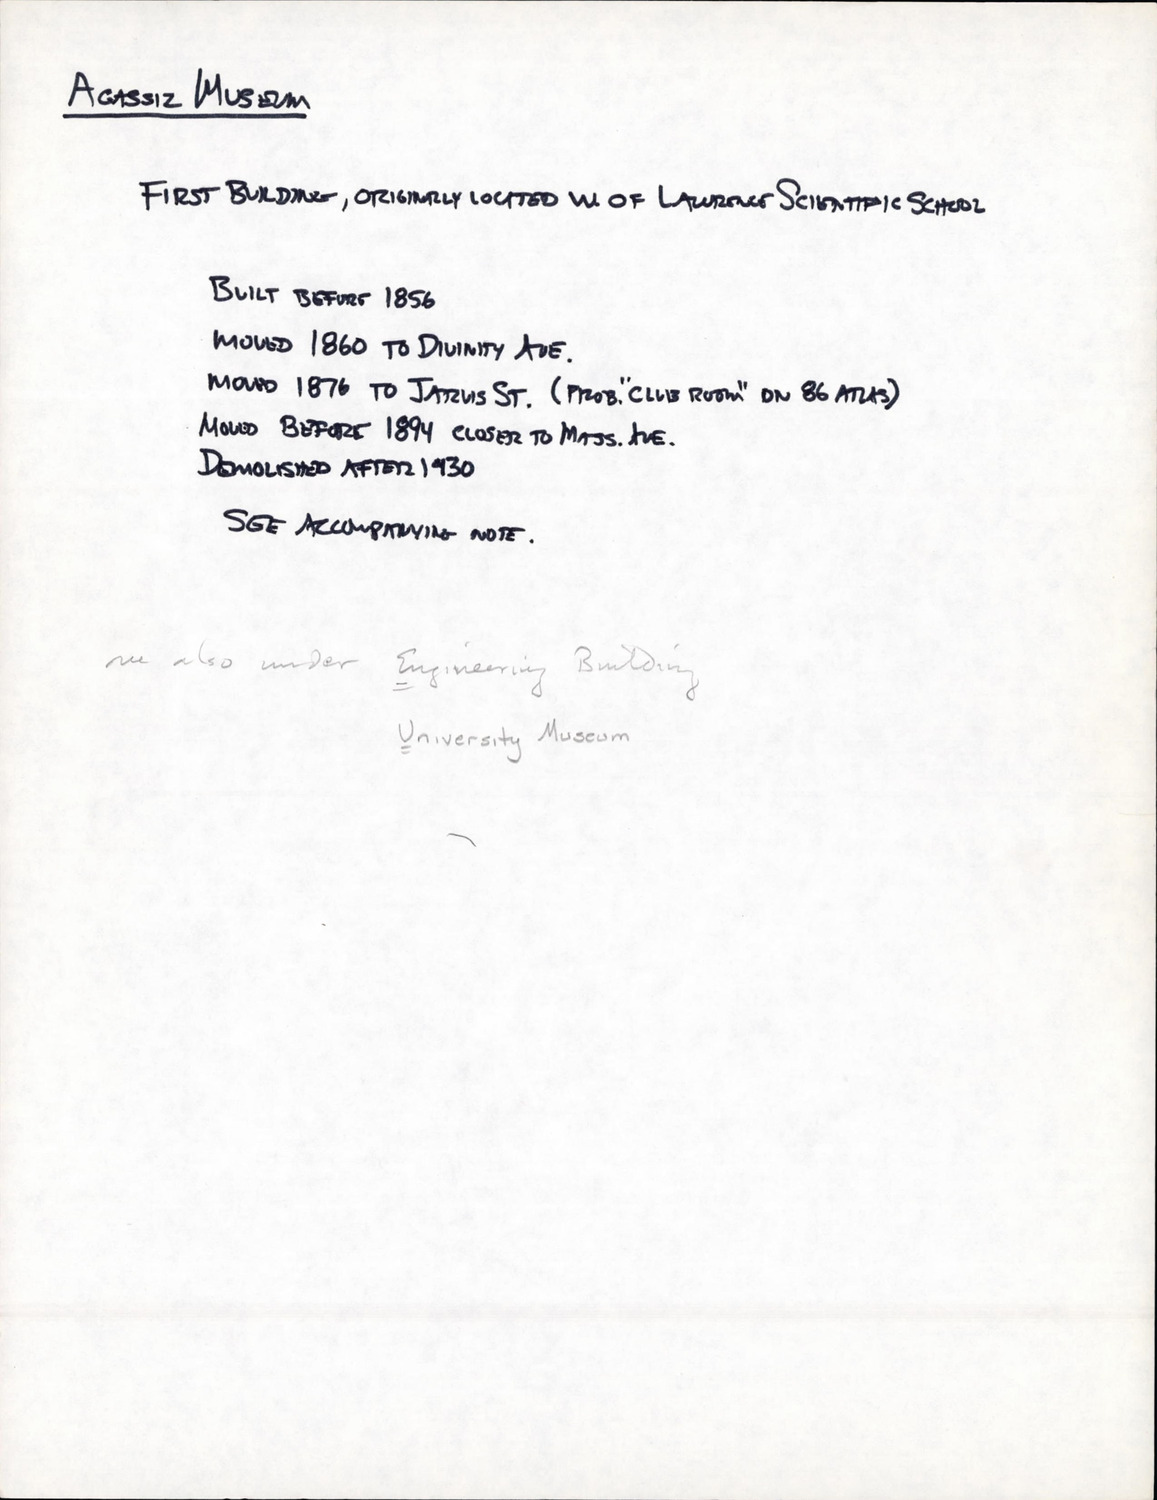 AGASSIZ MUSEUM
FIRST BUILDING, ORIGINALLY LOCATED W. OF LAWRENCE SCIENTIFIC SCHOOL
BUILT BEFORE 1856
MOVED 1860 TO DIVINITY AVE.
MOVED 1876 TO JARVIS ST. (PROB. "CLUB ROOM" ON 86 ATLAS)
MOVED BEFORE 1894 CLOSER TO MASS. AVE.
DEMOLISHED AFTER 1930
SEE ACCOMPANYING NOTE.
see also under Engineering Building
University Museum